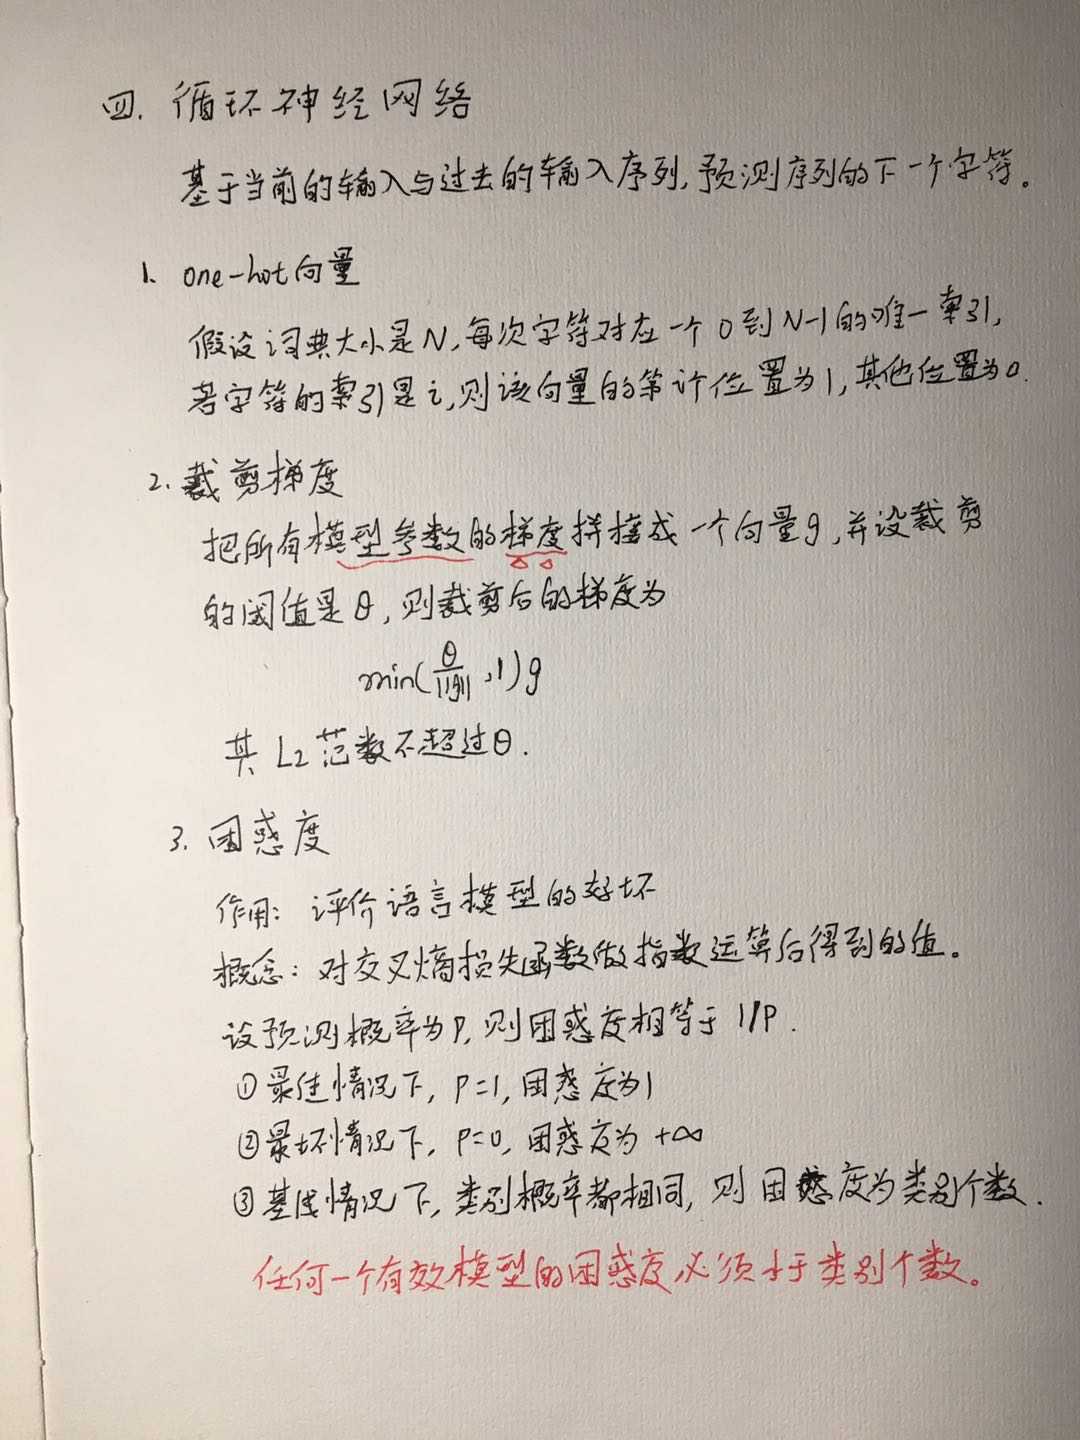 四. 循环神经网络
基于当前的输入与过去的输入序列,预测序列的下一个字符。
1. one-hot向量
假设词典大小是N,每次字符对应一个0到N-1的唯一索引,
若字符的索引是i,则该向量的第i个位置为1,其他位置为0.
2. 裁剪梯度
把所有模型参数的梯度拼接成一个向量g,并设裁剪
的阈值是θ,则裁剪后的梯度为
min(θ/||g||,1)g
其L2范数不超过θ.
3. 困惑度
作用: 评价语言模型的好坏
概念: 对交叉熵损失函数做指数运算后得到的值。
设预测概率为P,则困惑度相等于1/P.
①最佳情况下, P=1,困惑度为1
②最坏情况下, P=0,困惑度为+∞
③基线情况下,类别概率都相同,则困惑度为类别个数.
任何一个有效模型的困惑度必须小于类别个数。